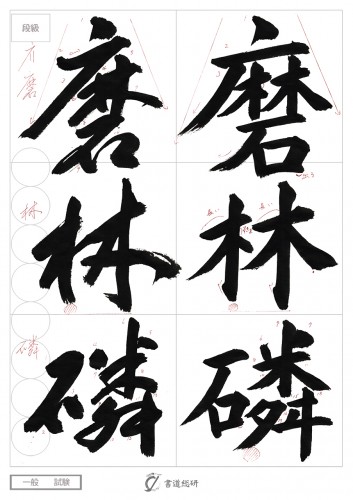 段級
磨 磨 磨
林 林 林
磷 磷 磷
一般 試験
書道総研